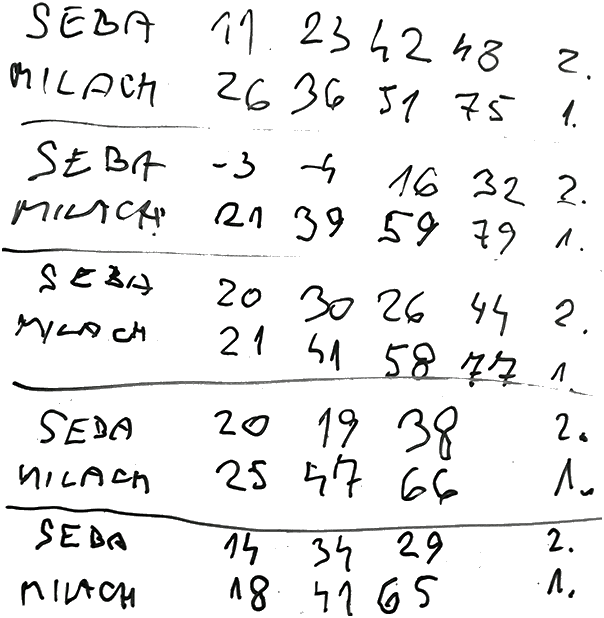 SEBA 11 23 42 48 2.
MILACH 26 36 51 75 1.
SEBA -3 -4 16 32 2.
MILACH 21 39 59 79 1.
SEBA 20 30 26 44 2.
MILACH 21 41 58 77 1.
SEBA 20 19 38 2.
MILACH 25 47 66 1.
SEBA 14 34 29 2.
MILACH 18 41 65 1.